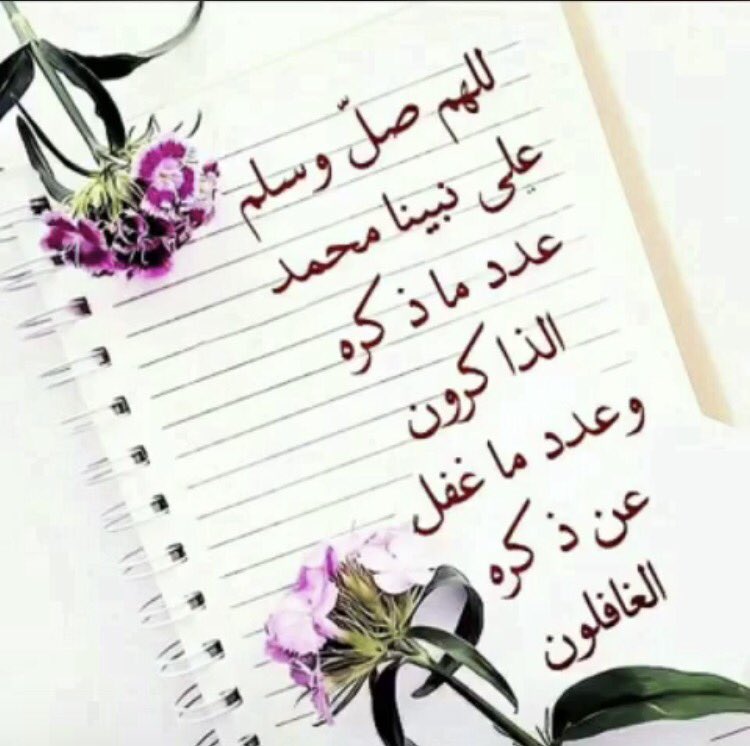 للهم صلّ وسلم
على نبينا محمد
عدد ما ذكره
الذاكرون
وعدد ما غفل
عن ذكره
الغافلون